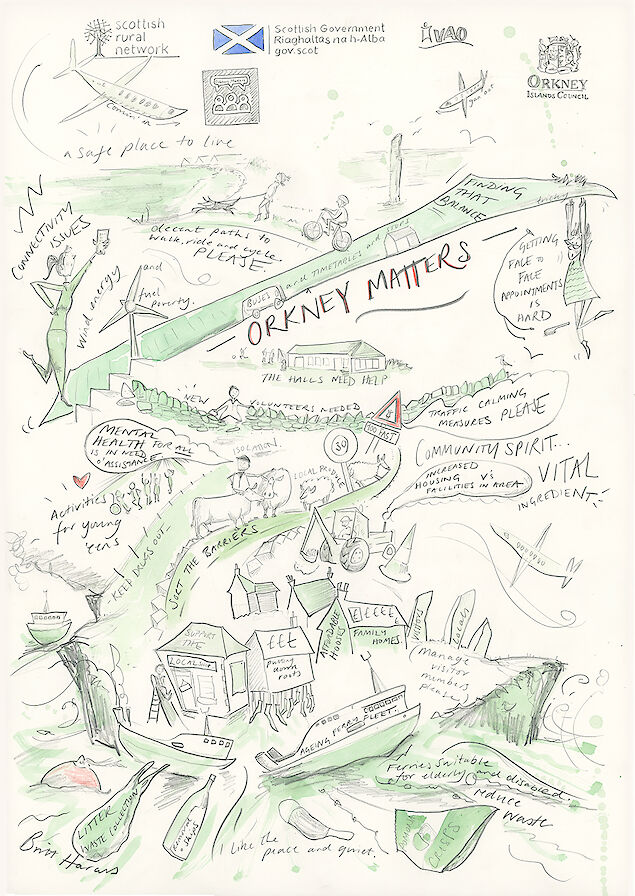 scottish
rural
network
Scottish Government
Riaghaltas na h-Alba
gov.scot
VAO
ORKNEY
ISLANDS COUNCIL
a safe place to live
FINDING
THAT
BALANCE
tricky
CONNECTIVITY
ISSUES
decent paths to
walk, ride and cycle.
PLEASE.
GETTING
FACE TO
FACE
APPOINTMENTS
IS
HARD
Wind energy
and
fuel
poverty.
BUSES
and TIMETABLES and
ORKNEY MATTERS
THE HALLS NEED HELP
NEW VOLUNTEERS NEEDED
TOO FAST
TRAFFIC CALMING
MEASURES PLEASE
MENTAL
HEALTH FOR ALL
IS IN NEED
O' ASSISTANCE
ISOLATION.
30
LOCAL PRODUCE
COMMUNITY SPIRIT...
VITAL
INGREDIENT
INCREASED
HOUSING V's
FACILITIES IN AREA
Activities
for young
'eens
KEEP DRUGS OUT
SORT THE BARRIERS
SUPPORT
THE
LOCAL
£££
putting
down
roots
AFFORDABLE
HOUSES
£ £££££
FAMILY
HOMES
VISITORS
Locals
Manage
visitor
numbers
please
AGEING FERRY FLEET.
Ferries suitable
for elderly and disabled.
reduce
waste
LITTER
WASTE COLLECTION
I like the
peace and quiet.
CRISPS